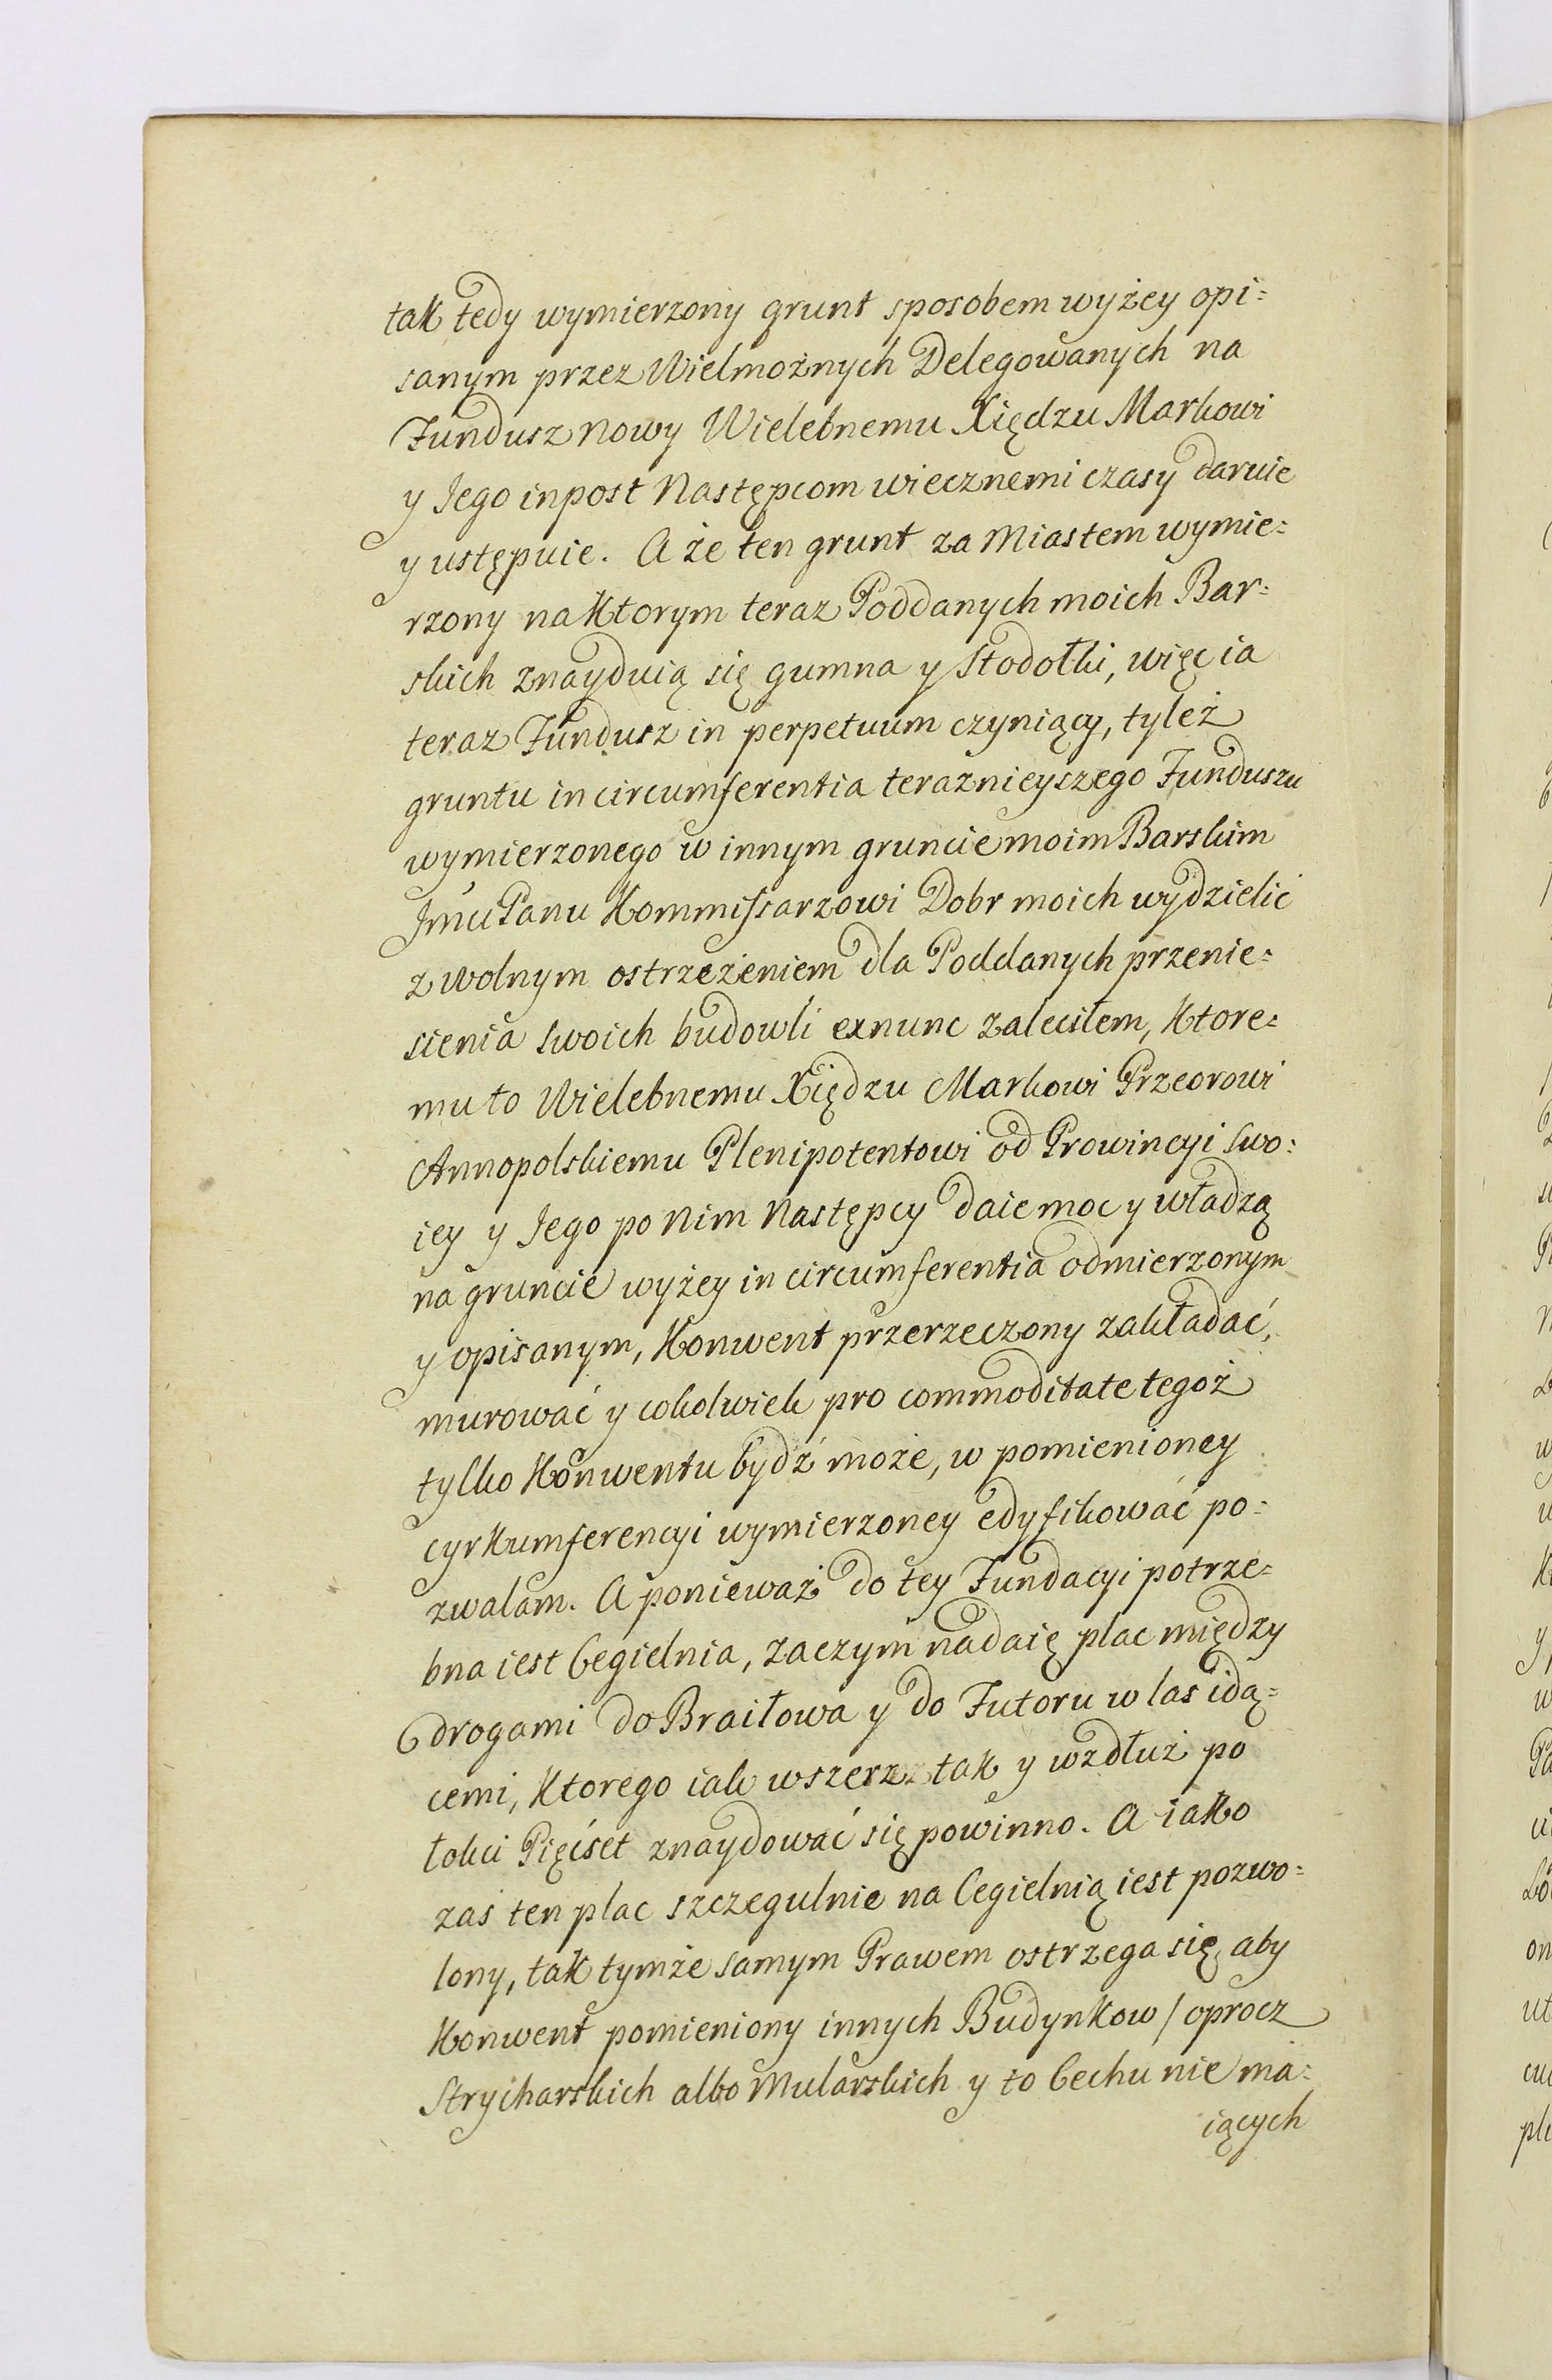 tak tedy wymierzony grunt sposobem wyżey opi=
sanym przez Wielmożnych Delegowanych na
Fundusz nowy Wielebnemu Xiędzu Markowi
y Jego inpost Następcom wiecznemi czasy daruie
y ustępuie. A że ten grunt za Miastem wymie=
rzony na Ktorym teraz Poddanych moich Bar=
skich znayduią się gumna y Stodołki, więc ia
teraz Fundusz in perpetuum czyniący, tyleż
gruntu in circumferentia teraznieyszego Funduszu
wymierzonego w innym gruncie moim Barskim
Jmći Panu Kommissarzowi Dobr moich wydzielić
z wolnym ostrzeżeniem dla Poddanych przenie=
sienia swoich budowli exnunc zaleciłem, Ktore=
mu to Wielebnemu Xiędzu Markowi Przeorowi
Annopolskiemu Plenipotentowi od Prowincyi swo=
iey y Jego po Nim Następcy daie moc y władzą
na gruncie wyżey in circumferentia odmierzonym
y opisanym, Konwent przerzeczony zakładać,
murować y cokolwiek pro commoditate tegoż
tylko Konwentu bydź może, w pomienioney
cyrkumferencyi wymierzoney edyfikować po=
zwalam. A ponieważ do tey Fundacyi potrze=
bna iest Cegielnia, zaczym nadaię plac między
drogami do Braiłowa y do Futoru w las idą=
cemi, Ktorego iak wszerz tak y wzdłuż po
łokci Pięćset znaydować się powinno. A iako
zaś ten plac szczegulnie na Cegielnią iest pozwo=
lony, tak tymże samym Prawem ostrzega się, aby
Konwent pomieniony innych Budynkow / oprocz
Strycharskich albo Mularskich y to Cechu nie ma=
iących